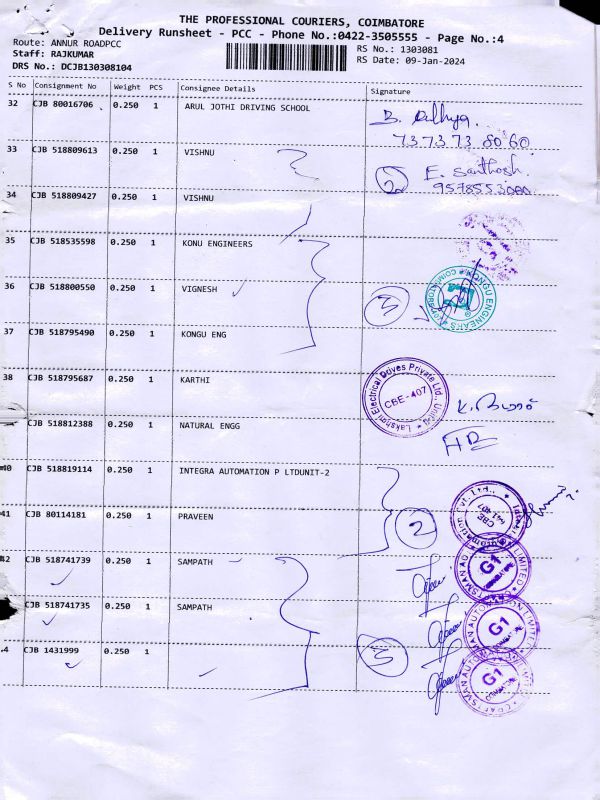 THE PROFESSIONAL COURIERS, COIMBATORE
Delivery Runsheet - PCC - Phone No.:0422-3505555 - Page No.:4
Route: ANNUR ROADPCC RS No.: 1303081
Staff: RAJKUMAR RS Date: 09-Jan-2024
DRS No.: DCJB130308104
S No Consignment No Weight PCS Consignee Details Signature
32 CJB 80016706 0.250 1 ARUL JOTHI DRIVING SCHOOL
73.73.73.80 60
33 CJB 518809613 0.250 1 VISHNU
2 E. Santhosh
9578553000
34 CJB 518809427 0.250 1 VISHNU
35 CJB 518535598 0.250 1 KONU ENGINEERS
36 CJB 518800550 0.250 1 VIGNESH
3 KONGU ENGINEERS
37 CJB 518795490 0.250 1 KONGU ENG
38 CJB 518795687 0.250 1 KARTHI
Lakshmi Electrical Drives Private Ltd., Unit
CBE-407
CJB 518812388 0.250 1 NATURAL ENGG
40 CJB 518819114 0.250 1 INTEGRA AUTOMATION P LTDUNIT-2
41 CJB 80114181 0.250 1 PRAVEEN
2
CBE
641 407
42 CJB 518741739 0.250 1 SAMPATH
CRAFTSMAN AUTOMATION LIMITED
G1
CJB 518741735 0.250 1 SAMPATH
CRAFTSMAN AUTOMATION LIMITED
G1
4 CJB 1431999 0.250 1
3
CRAFTSMAN AUTOMATION LIMITED
G1